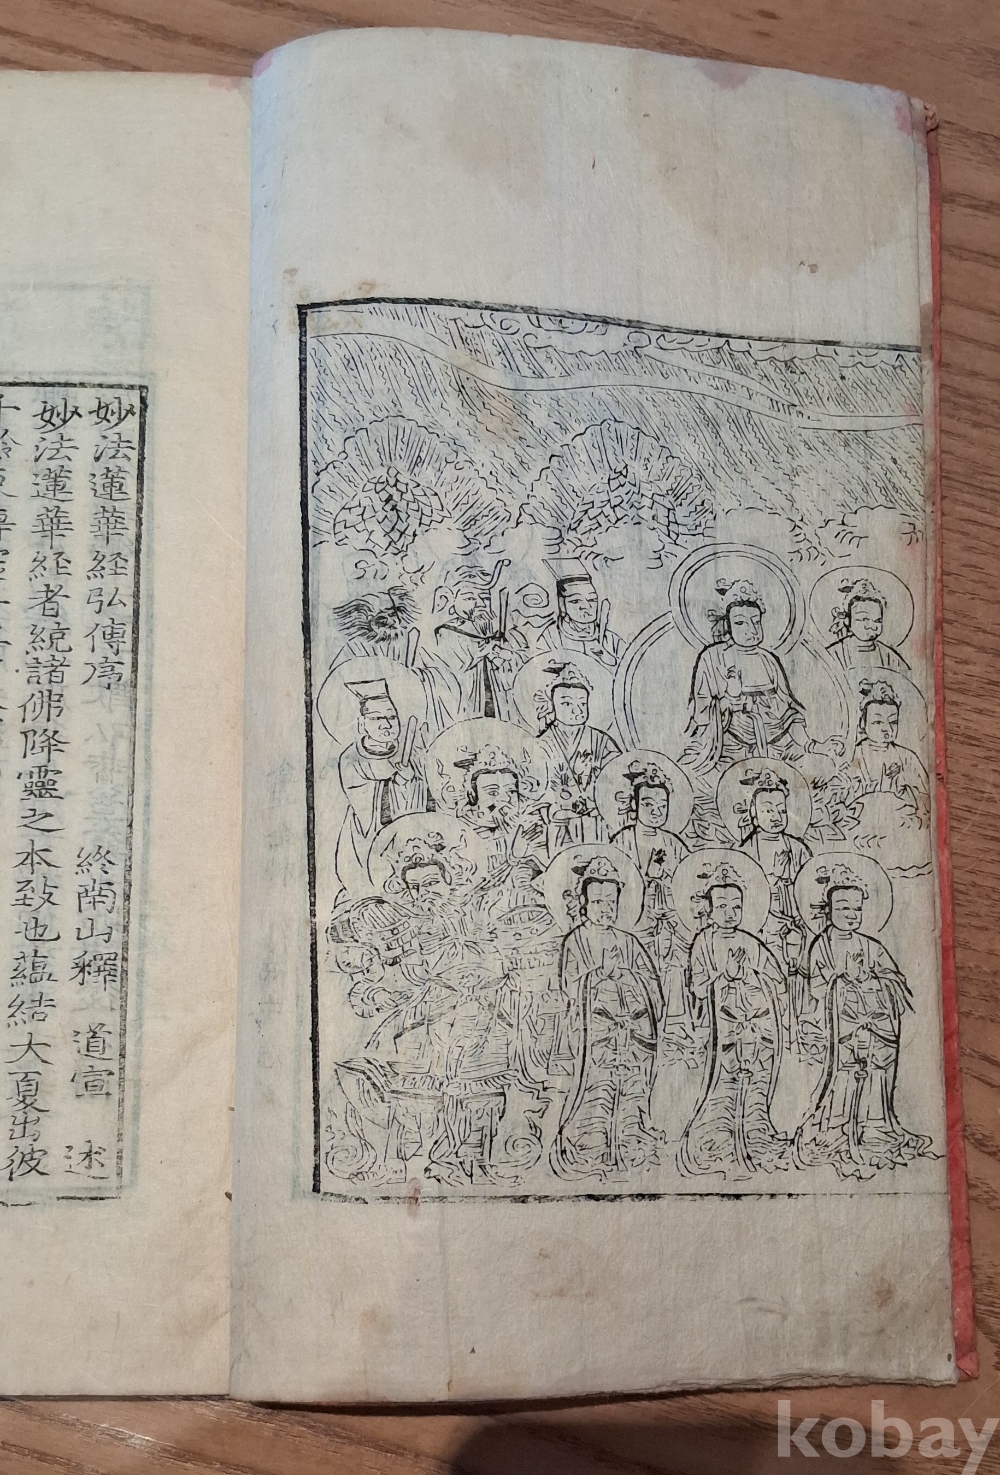 妙法蓮華経弘傳序
終南山釋 道宣 述
妙法蓮華経者統諸佛降靈之本致也蘊結大夏出彼
kobay